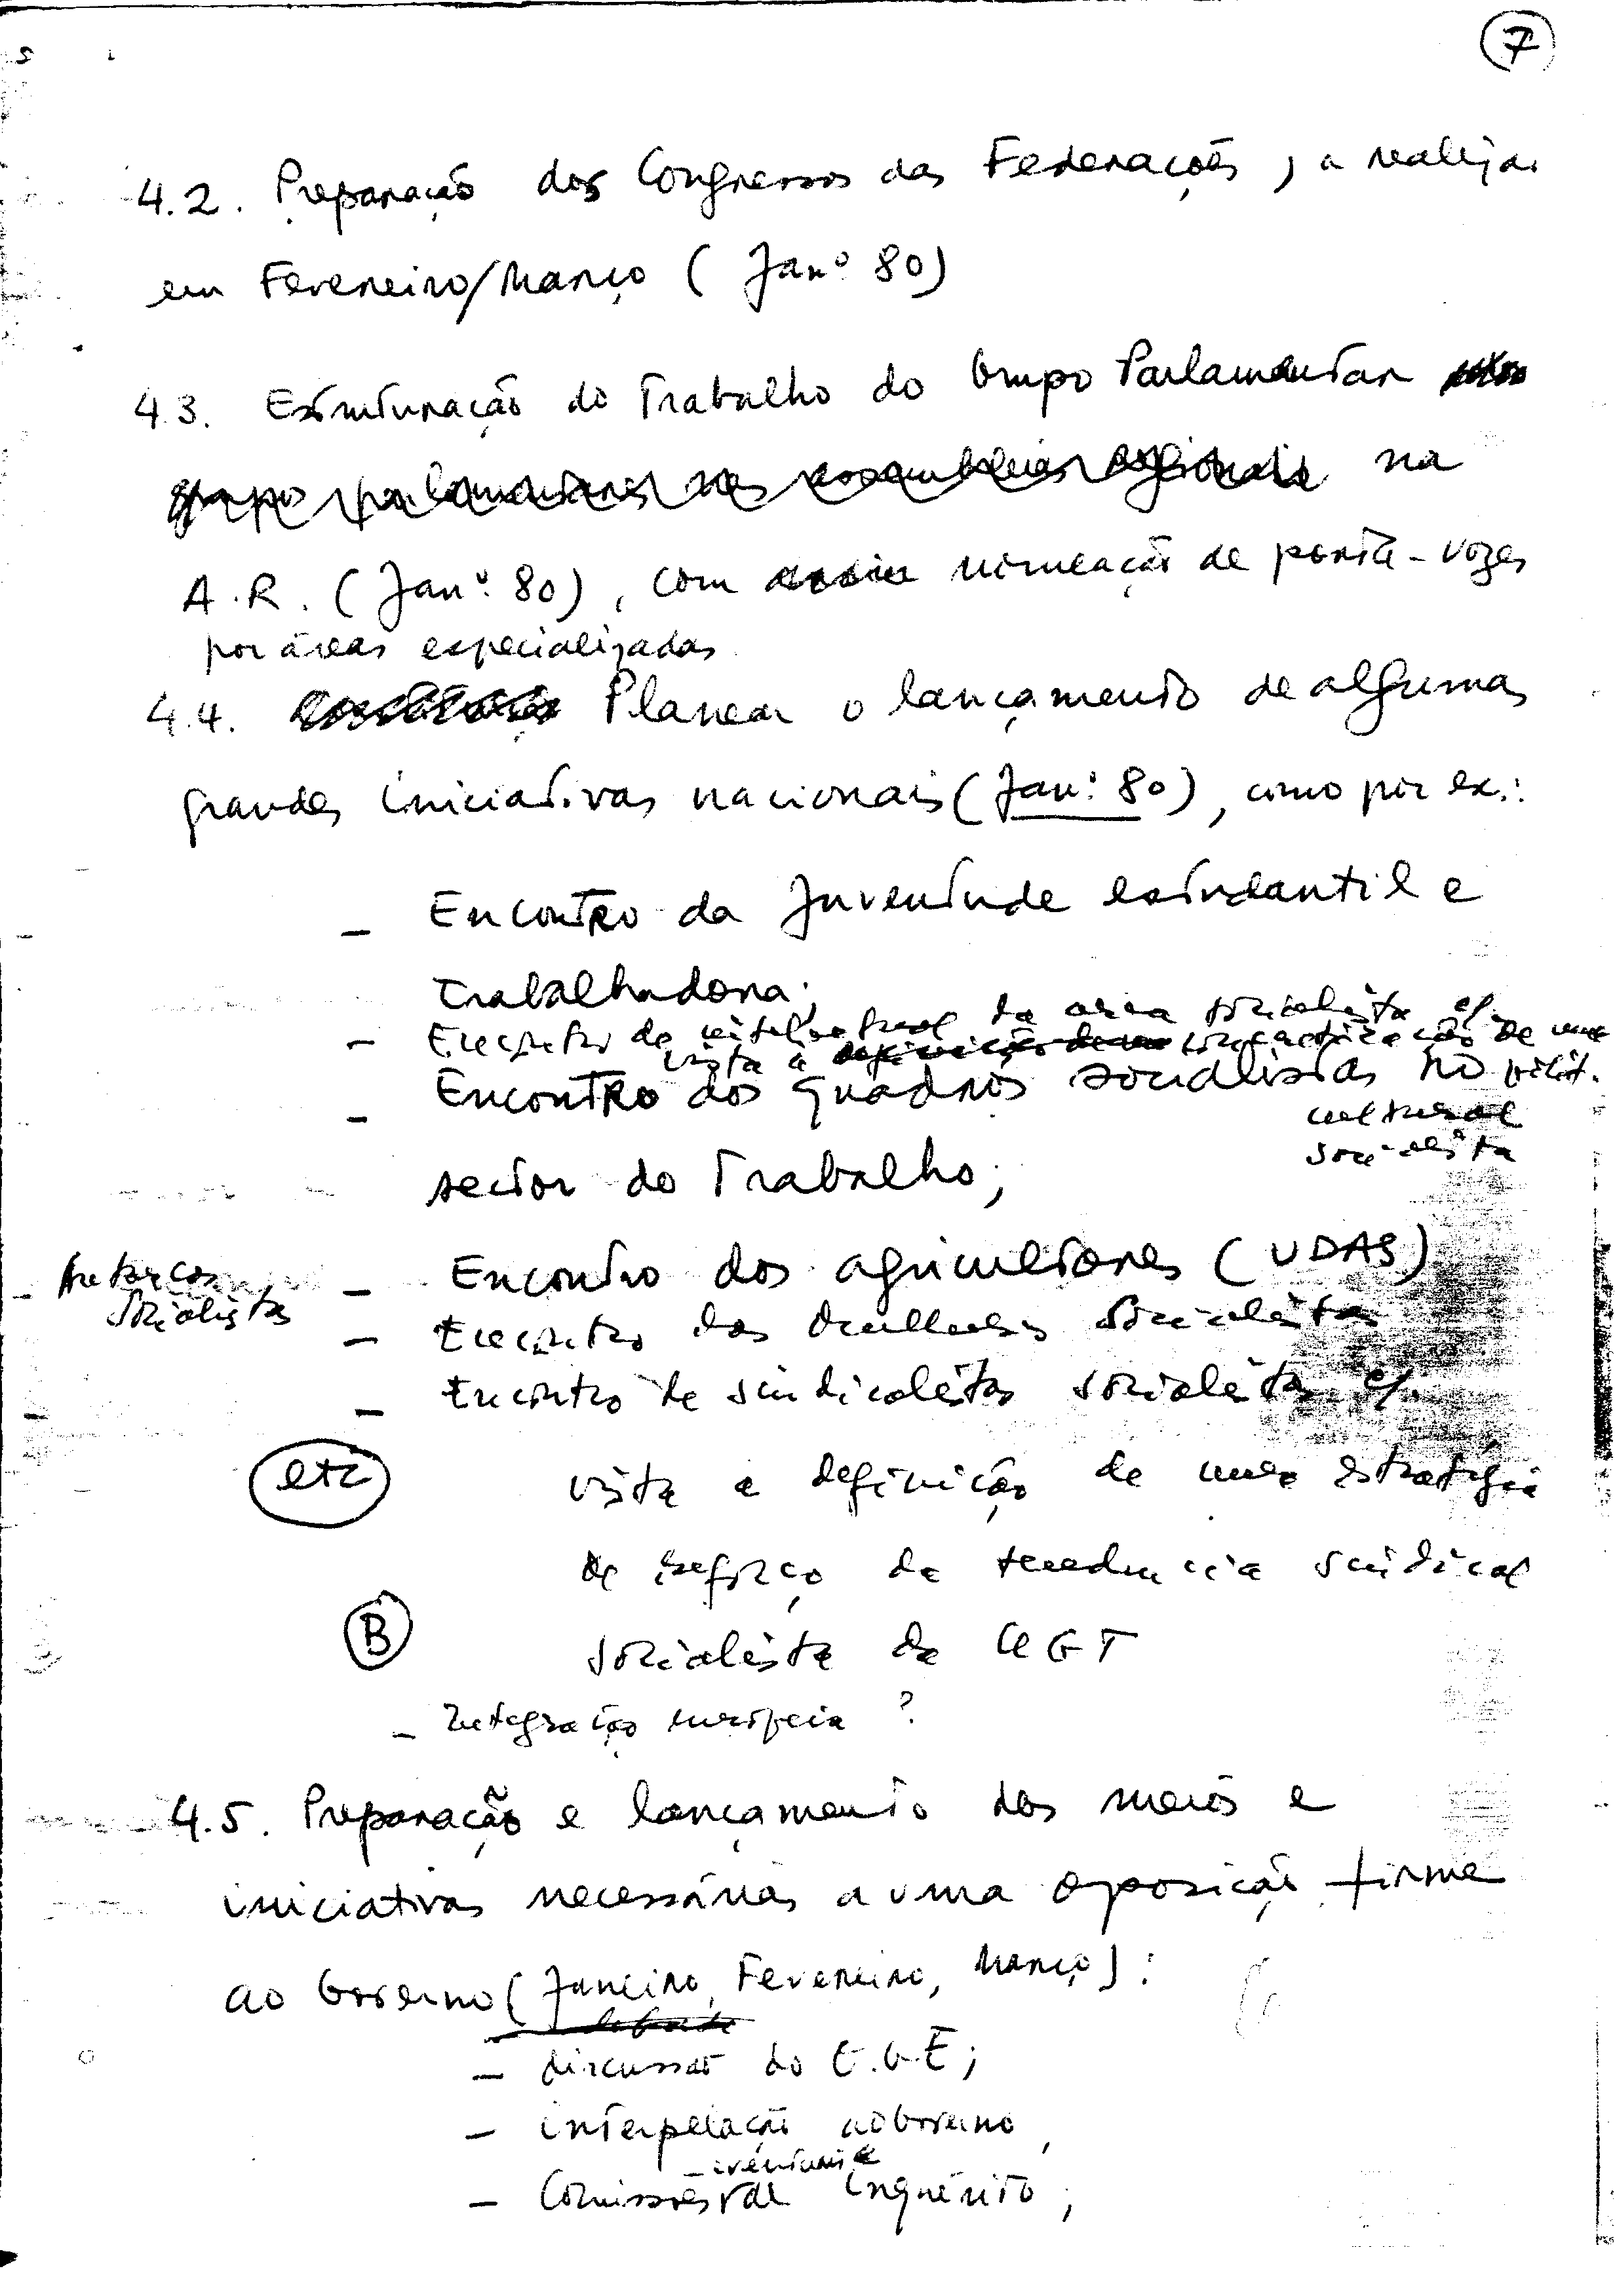 7
4.2. Preparação dos Congressos das Federações, a realizar
em Fevereiro/Março (Janº 80)
4.3. Estruturação do Trabalho do Grupo Parlamentar
grupo parlamentares nas assembleias regionais na
A.R. (Janº 80), com nomeação de porta-vozes
por áreas especializadas
4.4. Planear o lançamento de algumas
grandes iniciativas nacionais (Janº 80), como por ex.:
- Encontro da Juventude estudantil e
Trabalhadora;
- Encontro de intelectuais da area socialista c/
vista à definição de uma concretização de uma
polit. cultural socialista
- Encontro dos Quadros socialistas no
sector do Trabalho;
- Encontro dos agricultores (UDAS)
- Autarcas
socialistas
- Encontro das mulheres socialistas
- Encontro de sindicalistas socialistas c/
etc
vista a definição de uma estratégia
de reforço da tendencia sindical
B
socialista da UGT
- Integração europeia ?
4.5. Preparação e lançamento dos meios e
iniciativas necessárias a uma oposição firme
ao Governo (Janeiro, Fevereiro, Março):
- discussão do O.G.E;
- interpelação ao Governo,
- eventuais
- Comissões de Inquérito;